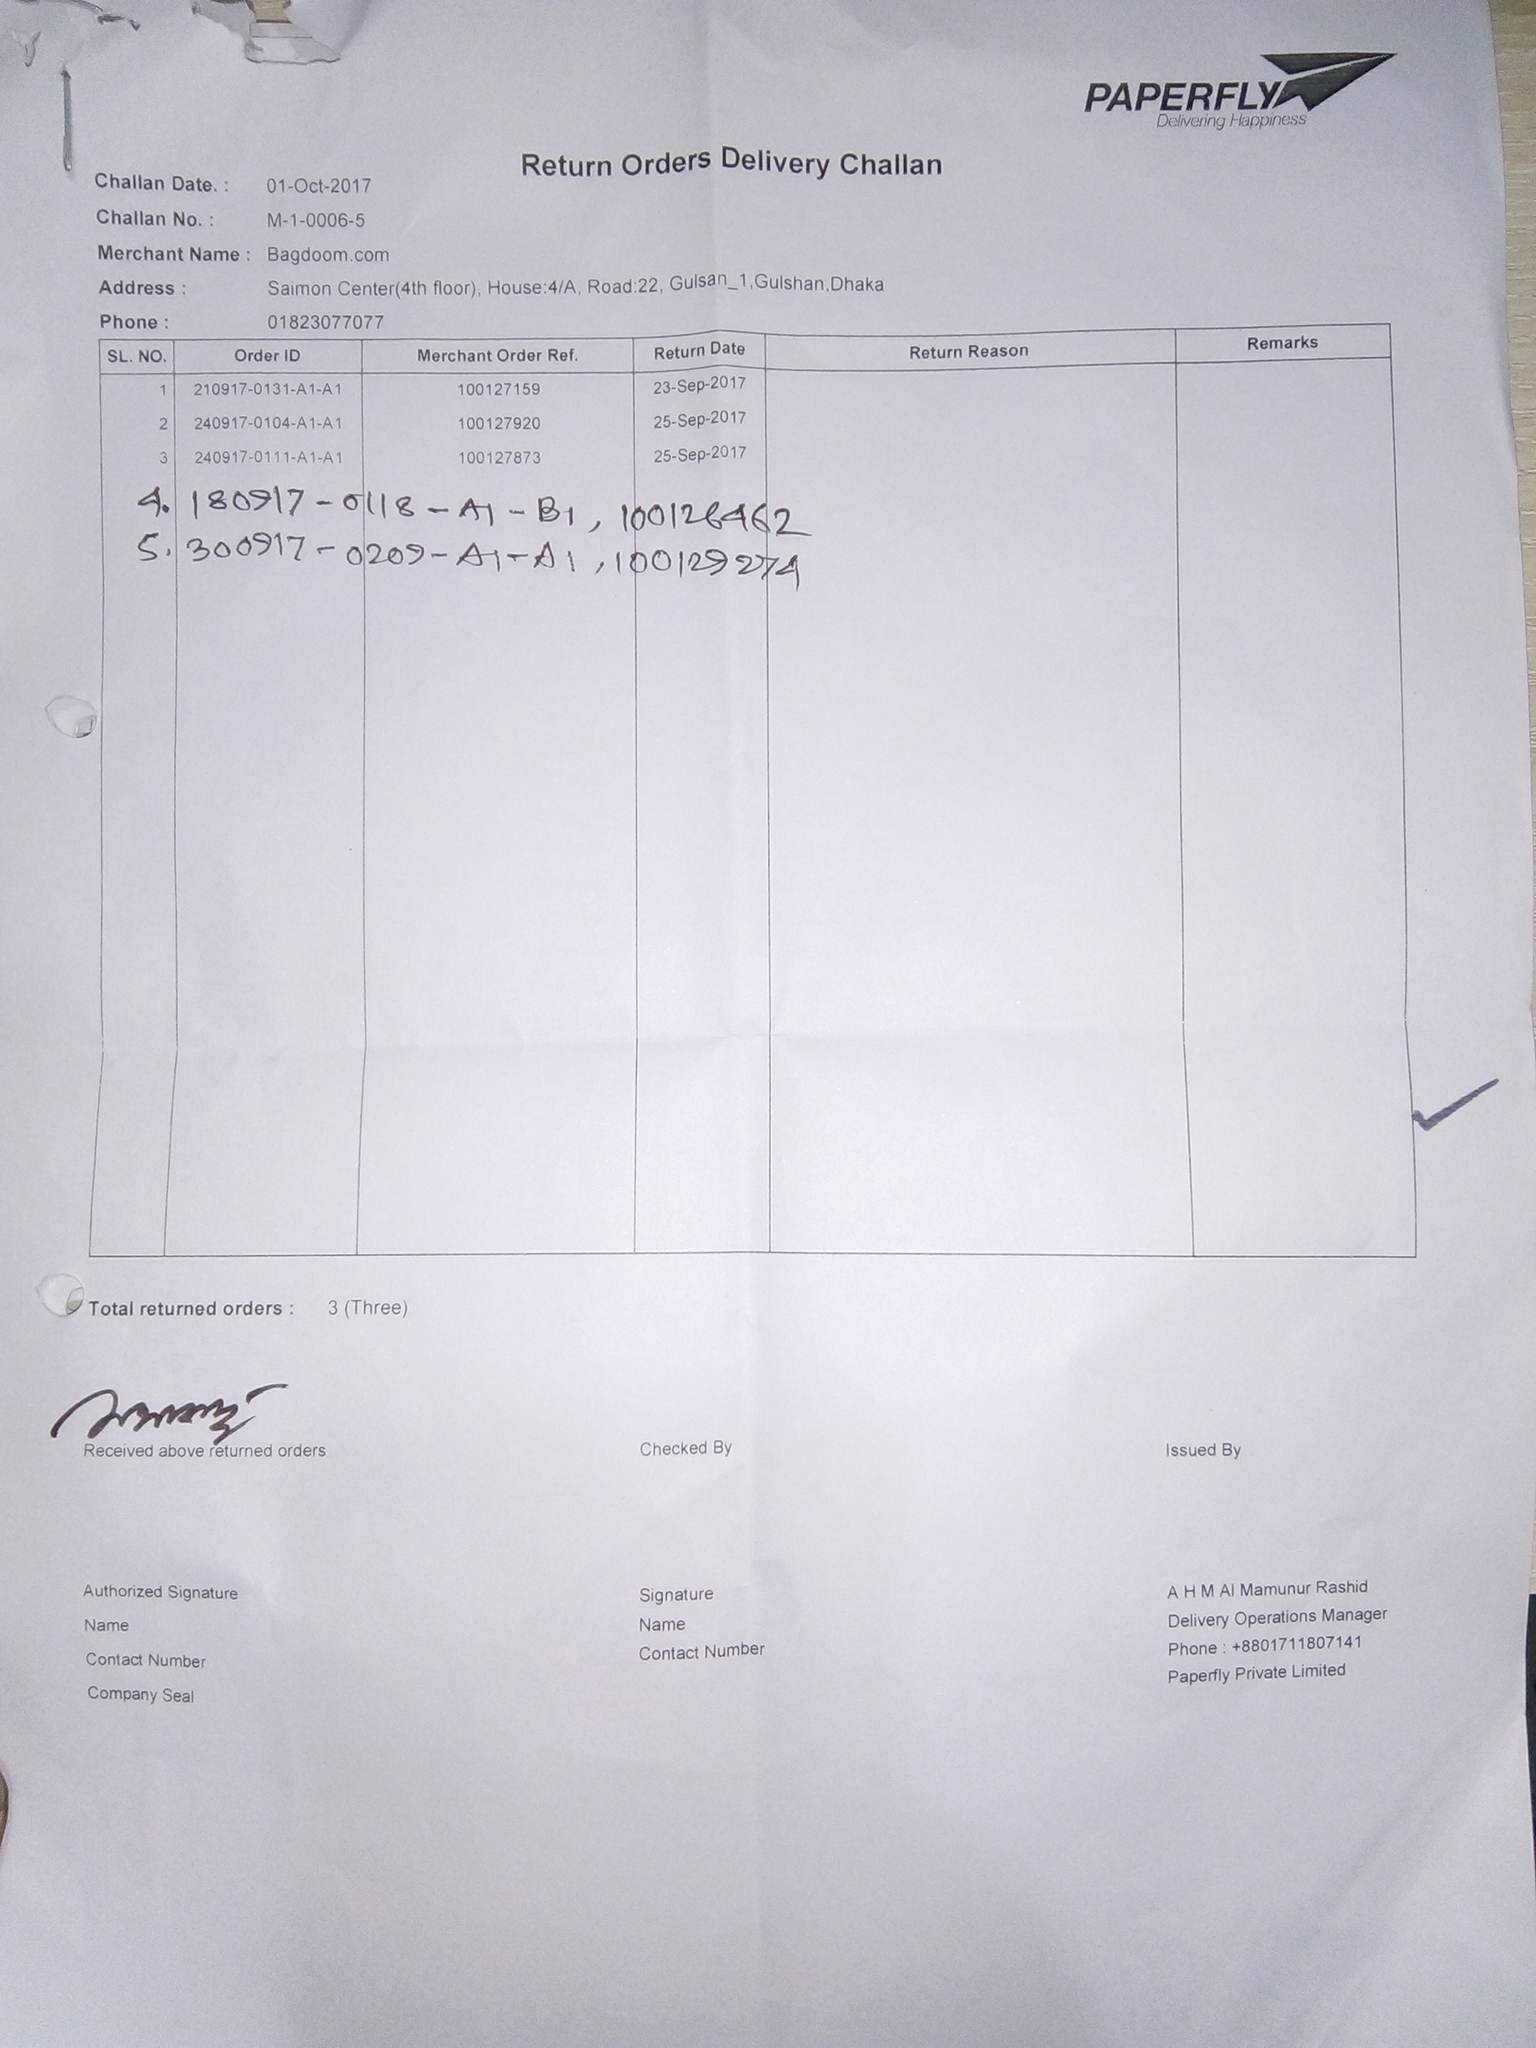 PAPERFLY
Delivering Happiness
Return Orders Delivery Challan
Challan Date. : 01-Oct-2017
Challan No. : M-1-0006-5
Merchant Name : Bagdoom.com
Address : Saimon Center(4th floor), House:4/A, Road:22, Gulsan_1,Gulshan,Dhaka
Phone : 01823077077
SL. NO. Order ID Merchant Order Ref. Return Date Return Reason Remarks
1 210917-0131-A1-A1 100127159 23-Sep-2017
2 240917-0104-A1-A1 100127920 25-Sep-2017
3 240917-0111-A1-A1 100127873 25-Sep-2017
4. 180917-0118-A1-B1, 100126462
5. 300917-0209-A1-A1, 100129274
Total returned orders : 3 (Three)
Received above returned orders Checked By Issued By
Authorized Signature Signature A H M Al Mamunur Rashid
Name Name Delivery Operations Manager
Contact Number Contact Number Phone : +8801711807141
Company Seal Paperfly Private Limited